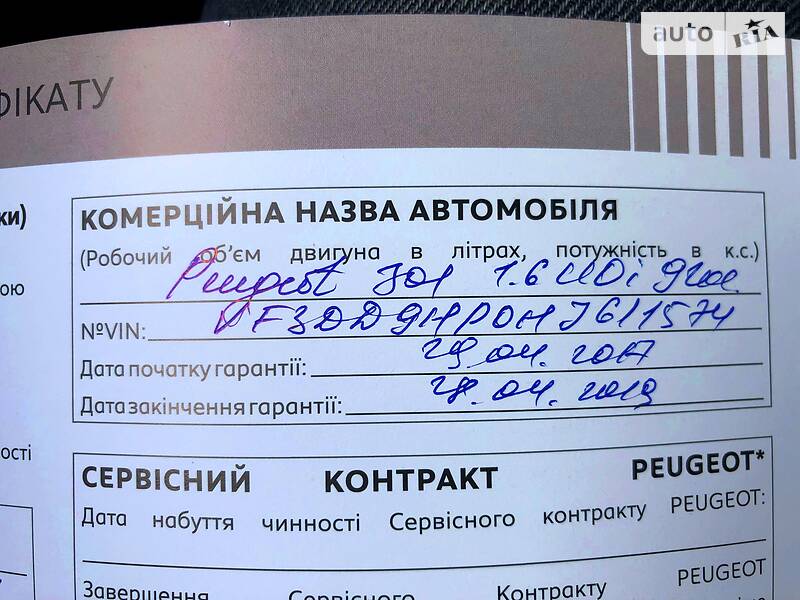 auto RIA
ФІКАТУ
ки)
ою
КОМЕРЦІЙНА НАЗВА АВТОМОБІЛЯ
(Робочий об'єм двигуна в літрах, потужність в к.с.)
Peugeot 301 1.6 HDi
№VIN: VF3DD9HP0HJ611574
Дата початку гарантії: 29.04.2017
Дата закінчення гарантії: 28.04.2019
ості
СЕРВІСНИЙ КОНТРАКТ PEUGEOT*
Дата набуття чинності Сервісного контракту PEUGEOT:
Завершення Сервісного Контракту PEUGEOT